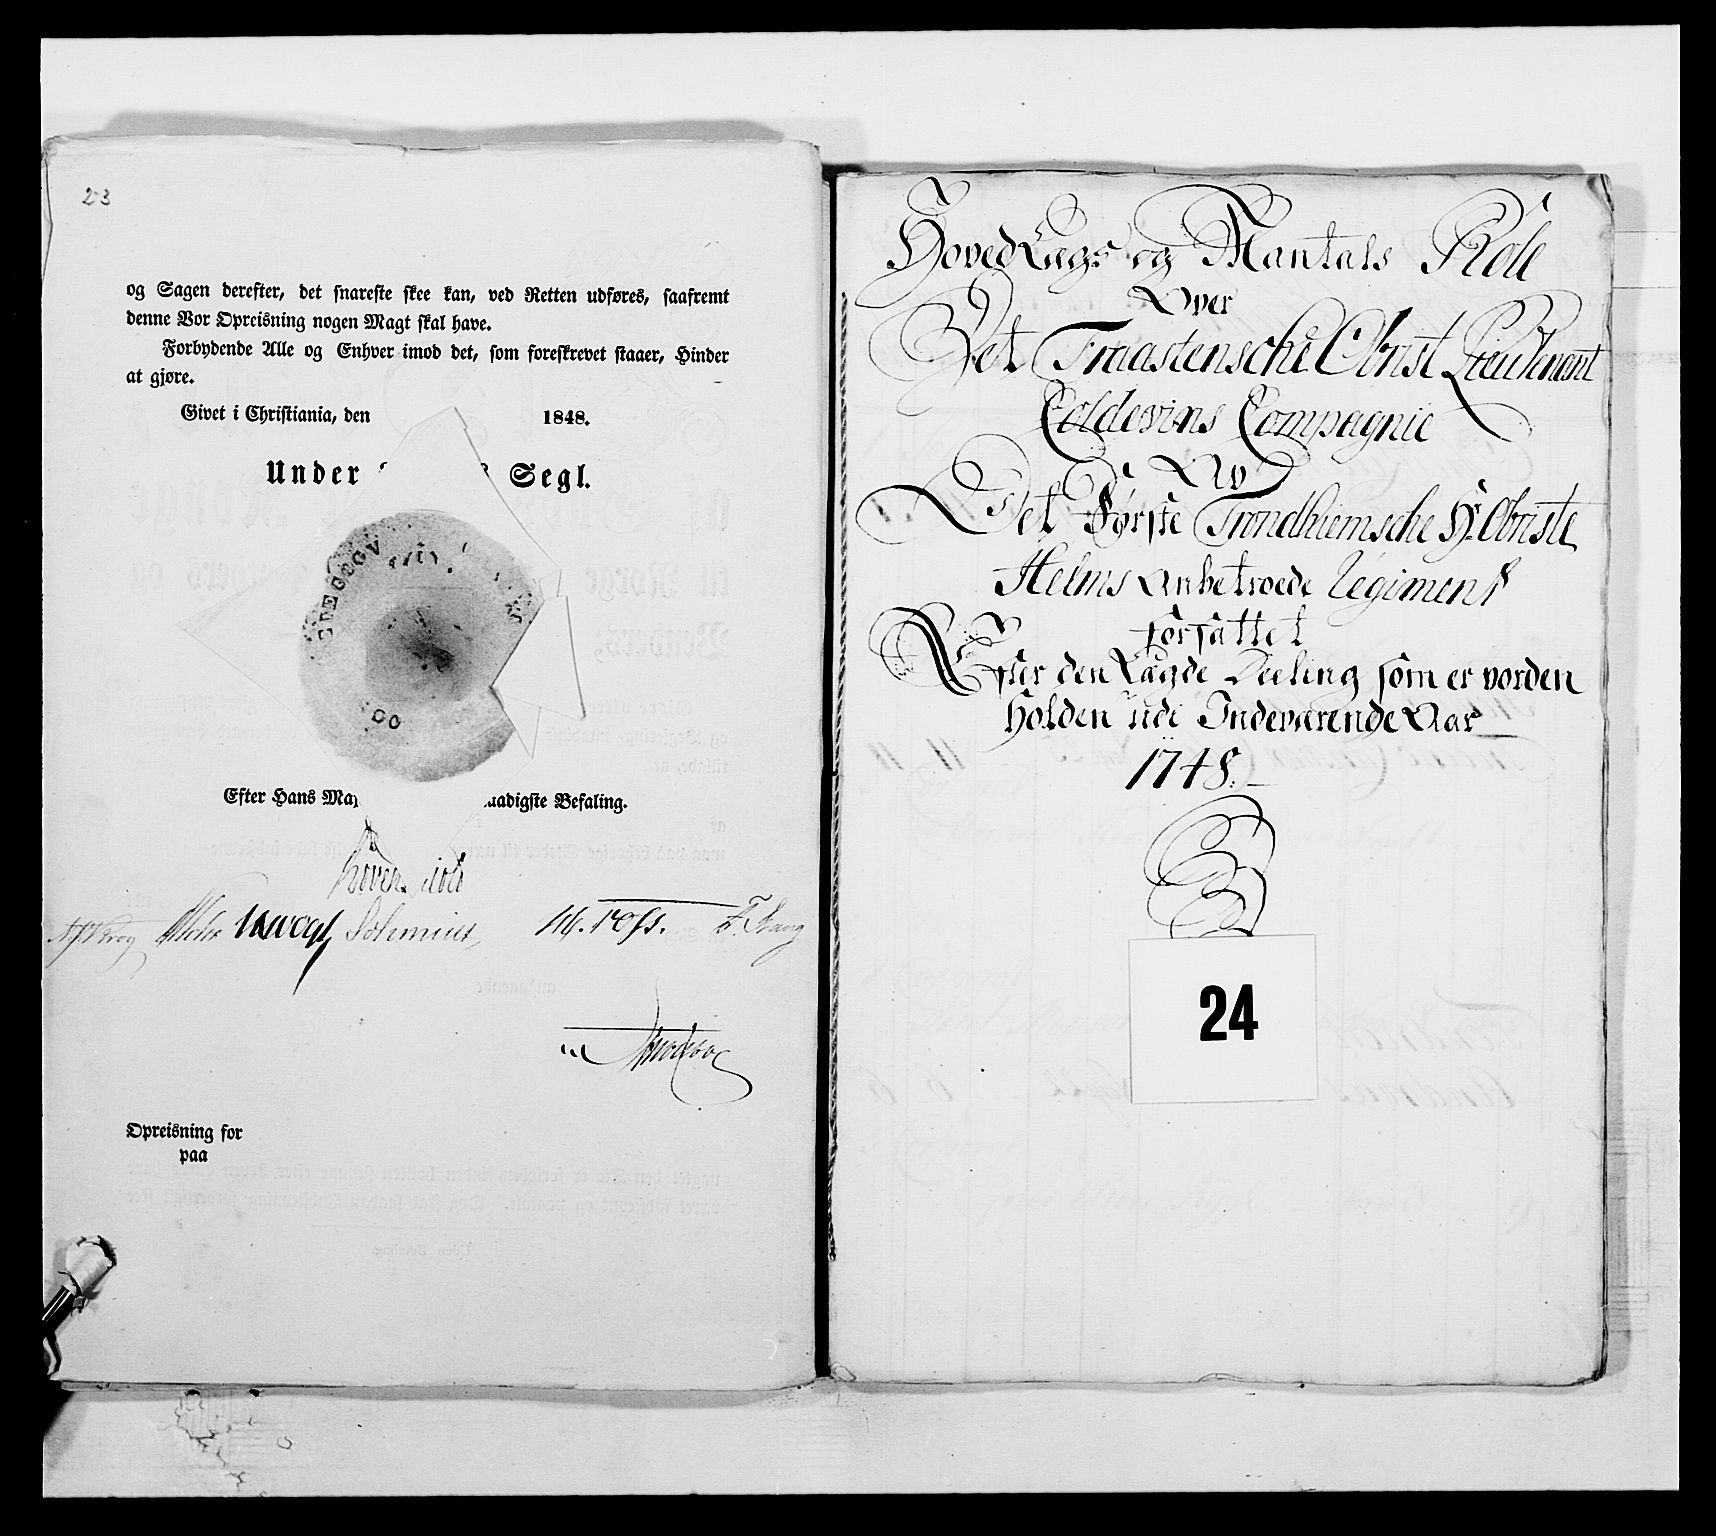 23
og Sagen derefter, det snareste skee kan, ved Retten udføres, saafremt
denne Vor Opreisning nogen Magt skal have.
Forbydende Alle og Enhver imod det, som foreskrevet staaer, Hinder
at gjøre.
Givet i Christiania, den 1848.
Under Segl.
Efter Hans Maj aadigste Befaling.
Løvenskiold
Vogt,
F. Stang
Opreisning for
paa
Hoved Lægs og Mantals Rolle
Over
Det Fraastensche Obrist Lieutenant
Coldevins Compagnie
Av
Det Første Trondhiemsche Hr. Obriste
Helms Anbetroede Regiment
forfattet
Efter den Lægde Deeling som er vorden
holden udi Indeværende Aar
1748.
24